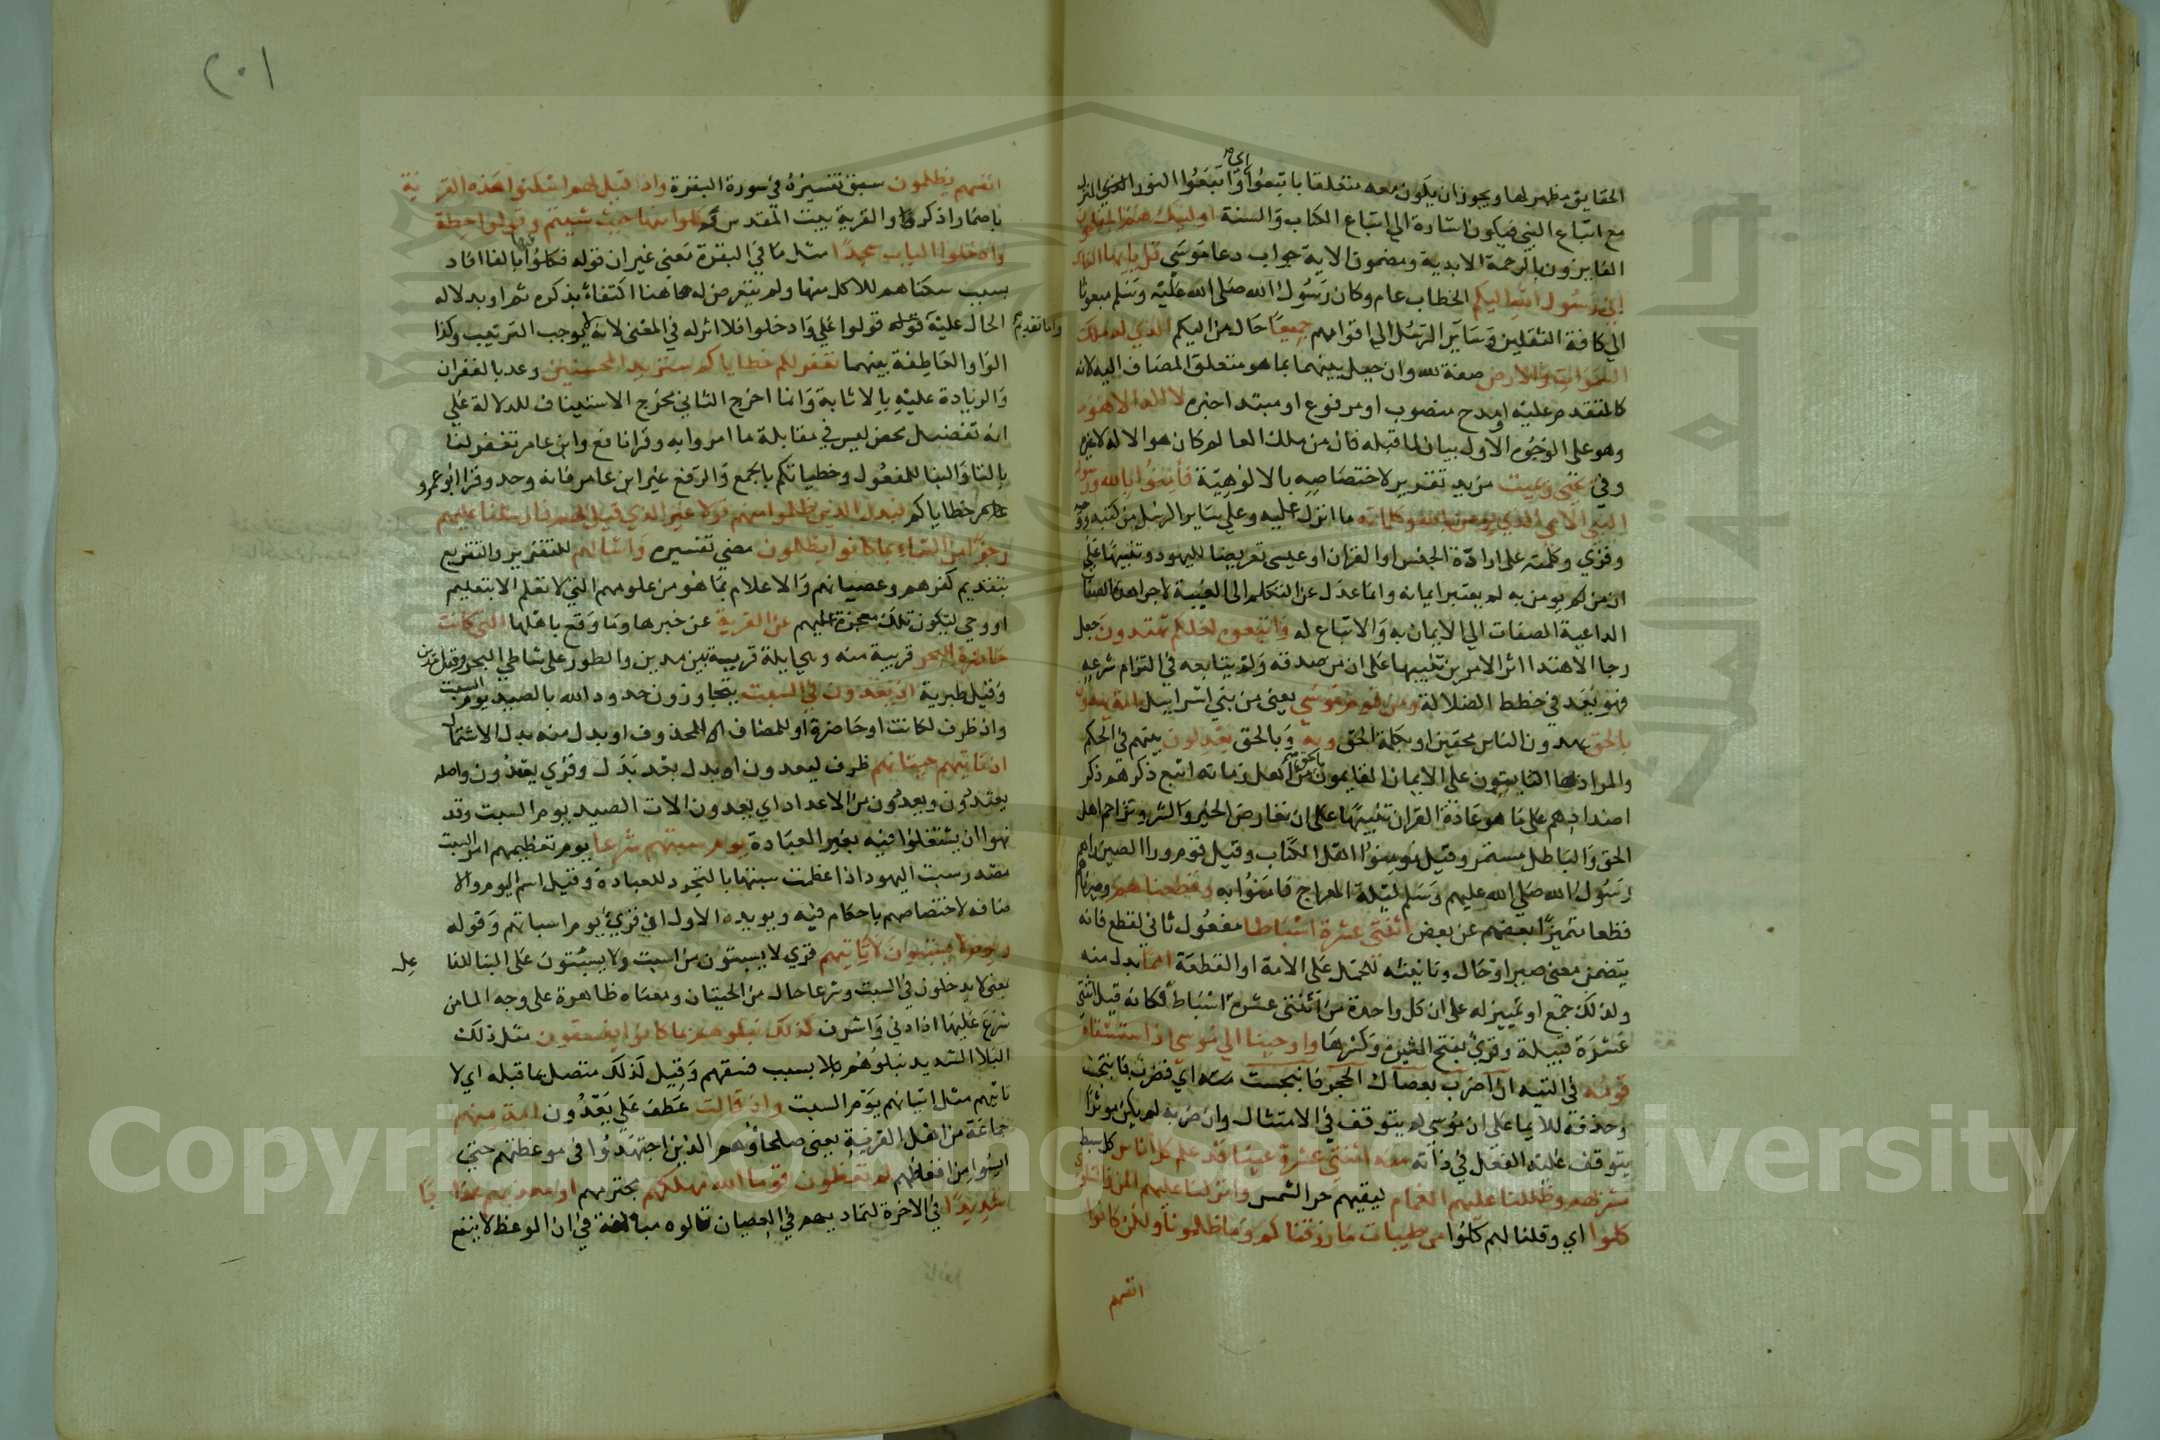 الحقايق مظهر لها ويجوز ان يكون معه متعلقا باتبعوا اي واتبعوا النور المنزل
مع اتباع النبي فيكون اشارة الي اتباع الكتاب والسنة اوليك هم المفلحون
الفايزون بالرحمة الابدية ومضمون الاية جواب دعا موسي قل يا ايها الناس
اني رسول الله اليكم الخطاب عام وكان رسول الله صلي الله عليه وسلم مبعوثا
الي كافة الثقلين وساير الرسل الي اقوامهم جميعا حال من اليكم الذي له ملك
السموات والارض صفة لله وان حيل بينهما بما هو متعلق المضاف اليه لانه
كالمتقدم عليه او مدح منصوب او مرفوع او مبتدا خبره لا اله الا هو
وهو علي الوجوه الاول بيان لما قبله فان من ملك العالم كان هو الاله لا غيره
وفي يحيي ويميت مزيد تقرير لاختصاصه بالالوهية فامنوا بالله ورسوله
النبي الامي الذي يومن بالله وكلماته ما انزل عليه وعلي ساير الرسل من كتبه ووحيه
وقري وكلمته علي ارادة الجنس او القران او عيسي تعريضا لليهود وتنبيها علي
ان من لم يومن به لم يعتبر ايمانه وانما عدل عن التكلم الي الغيبة لاجرا هذه الصفات
الداعية الصفات الي الايمان به والاتباع له واتبعوه لعلكم تهتدون جعل
رجا الاهتدا اثر الامرين تنبيها علي ان من صدقه ولم يتابعه في التزام شرعه
فهو يعد في خطط الضلالة ومن قوم موسي يعني من بني اسرايل امة يهدون
بالحق يهدون الناس محقين او بكلمة الحق وبه وبالحق يعدلون بينهم في الحكم
والمراد بها الثابتون علي الايمان القايمون بالحق من اهل زمانه اتبع ذكرهم ذكر
اضدادهم علي ما هو عادة القران تنبيها علي ان تعارض الخير والشر وتزاحم اهل
الحق والباطل مستمر وقيل مومنوا اهل الكتاب وقيل قوم ورا الصين راهم
رسول الله صلي الله عليهم وسلم ليلة المعراج فامنوا به وقطعناهم وصيرناهم
قطعا متميزا بعضهم عن بعض اثنتي عشرة اسباطا مفعول ثاني لقطع فانه
يتضمن معني صير او حال وتانيثه للحمل علي الامة او القطعة امما بدل منه
ولذلك جمع او تمييز له علي ان كل واحدة من اثنتي عشرة اسباط فكانه قيل اثنتي
عشرة قبيلة وقري بفتح الشين وكسرها واوحينا الي موسي اذ استسقاه
قومه في التيه ان اضرب بعصاك الحجر فانبجست منه اي فضرب فانبجست
وحذفه للايما علي ان موسي لم يتوقف في الامتثال وان ضربه لم يكن موثرا
يتوقف عليه الفعل في ذاته منه اثنتي عشرة عينا قد علم كل اناس كل سبط
مشربهم وظللنا عليهم الغمام ليقيهم حر الشمس وانزلنا عليهم المن والسلوي
كلوا اي وقلنا لهم كلوا من طيبات ما رزقناكم وما ظلمونا ولكن كانوا
انفسهم
٢٠١
انفسهم يظلمون سبق تفسيره في سورة البقرة واذ قيل لهم اسكنوا هذه القرية
باضمار اذكر والقرية بيت المقدس وكلوا منها حيث شيتم وقولوا حطة
وادخلوا الباب سجدا مثل ما في البقرة معني غير ان قوله فكلوا منها بالفا افاد
بسبب سكناهم للاكل منها ولم يتعرض له هاهنا اكتفاء بذكره ثم او بدلاله
الحال عليه واما تقديم قوله قولوا علي وادخلوا فلا اثر له في المعني لانه لم يوجب الترتيب وكذا
الواو العاطفة بينهما نغفر لكم خطاياكم سنزيد المحسنين وعد بالغفران
والزيادة عليه بالاثابة وانما اخرج الثاني مخرج الاستيناف للدلالة علي
انه تفضل محض ليس في مقابلة ما امروا به وقرا نافع وابن عامر تغفر لنا
بالتا والبنا للمفعول وخطياتكم بالجمع والرفع غير ابن عامر فانه وحد وقرا ابو عمرو
خطاياكم فبدل الذين ظلموا منهم قولا غير الذي قيل لهم فارسلنا عليهم
رجزا من السماء بما كانوا يظلمون مضي تفسيره واسالهم للتقرير والتقريع
بتقديم كفرهم وعصيانهم والاعلام بما هو من علومهم التي لا تعلم الا بتعليم
او وحي ليكون تلك معجزة عليهم عن القرية عن خبرها وما وقع باهلها التي كانت
حاضرة البحر قريبة منه وهي ايلة قرية بين مدين والطور علي شاطي البحر وقيل مدين
وقيل طبرية اذ يعدون في السبت يتجاوزون حدود الله بالصيد يوم السبت
واذ ظرف لكانت او حاضرة او للمضاف المحذوف او بدل منه بدل الاشتمال
اذ تاتيهم حيتانهم ظرف ليعدون او بدل بعد بدل وقري يعدون واصله
يعتدون ويعدون من الاعداد اي يعدون الات الصيد يوم السبت وقد
نهوا ان يشتغلوا فيه بغير العبادة يوم سبتهم شرعا يوم تعظيمهم امر السبت
مصدر سبت اليهود اذا عظمت سبتها بالتجرد للعبادة وقيل اسم اليوم والا
ضافه لاختصاصهم باحكام فيه ويويده الاول ان قري يوم اسباتهم وقوله
ويوم لا يسبتون لا تاتيهم قري لا يسبتون من اسبت ولا يسبتون علي البنا للمفا
يعني لا يدخلون في السبت وشرعا حال من الحيتان ومعناه ظاهرة علي وجه الما من
شرع علينا اذا دني واشرف كذلك نبلوهم بما كانوا يفسقون مثل ذلك
البلا الشديد نبلوهم بلا بسبب فسقهم وقيل كذلك متصل بما قبله اي لا
تاتيهم مثل اتيانهم يوم السبت واذ قالت عطف علي يعدون امة منهم
جماعة من اهل القرية يعني صلحاوهم الذين اجتهدوا في موعظتهم حتي
ايسوا من اتعاظهم لم تعظون قوما الله مهلكهم مخترمهم او معذبهم عذابا
شديدا في الاخرة لتماديهم في العصيان قالوه مبالغة في ان الوعظ لا ينفع
Copyright © King Saud University